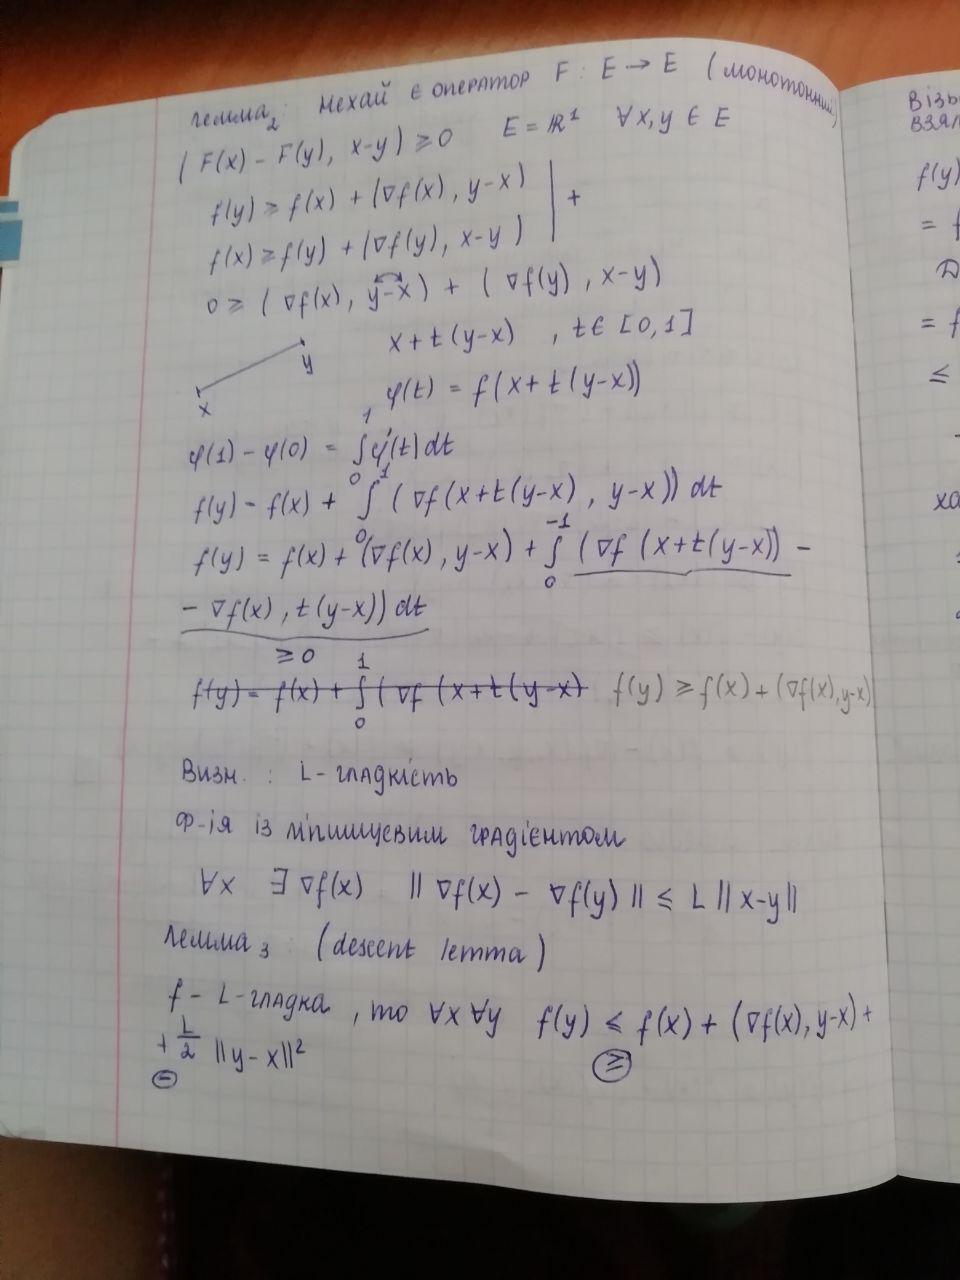 Лемма₂: Нехай є оператор F : E → E (монотонний)
(F(x) - F(y), x-y) ≥ 0 E = ℝ¹ ∀x,y ∈ E
f(y) ≥ f(x) + (∇f(x), y-x) | +
f(x) ≥ f(y) + (∇f(y), x-y)
0 ≥ (∇f(x), y-x) + (∇f(y), x-y)
x + t(y-x) , t ∈ [0,1]
x y
φ(t) = f(x+t(y-x))
φ(1) - φ(0) = ∫₀¹ φ'(t) dt
f(y) - f(x) + ∫₀¹ (∇f(x+t(y-x), y-x)) dt
f(y) = f(x) + (∇f(x), y-x) + ∫₀⁻¹ (∇f (x+t(y-x)) -
- ∇f(x), t(y-x)) dt
≥ 0
f(y) = f(x) + ∫₀¹ (∇f (x+t(y-x) f(y) ≥ f(x) + (∇f(x), y-x)
Визн. : L-гладкість
Ф-ія із ліпшицевим градієнтом
∀x ∃ ∇f(x) || ∇f(x) - ∇f(y) || ≤ L || x-y ||
Лемма₃ : (descent lemma)
f - L-гладка , то ∀x ∀y f(y) ≤ f(x) + (∇f(x), y-x) +
+ L/2 || y-x ||² ≥
-
Візь
взял
f(y)
= f
Д
= f
≤